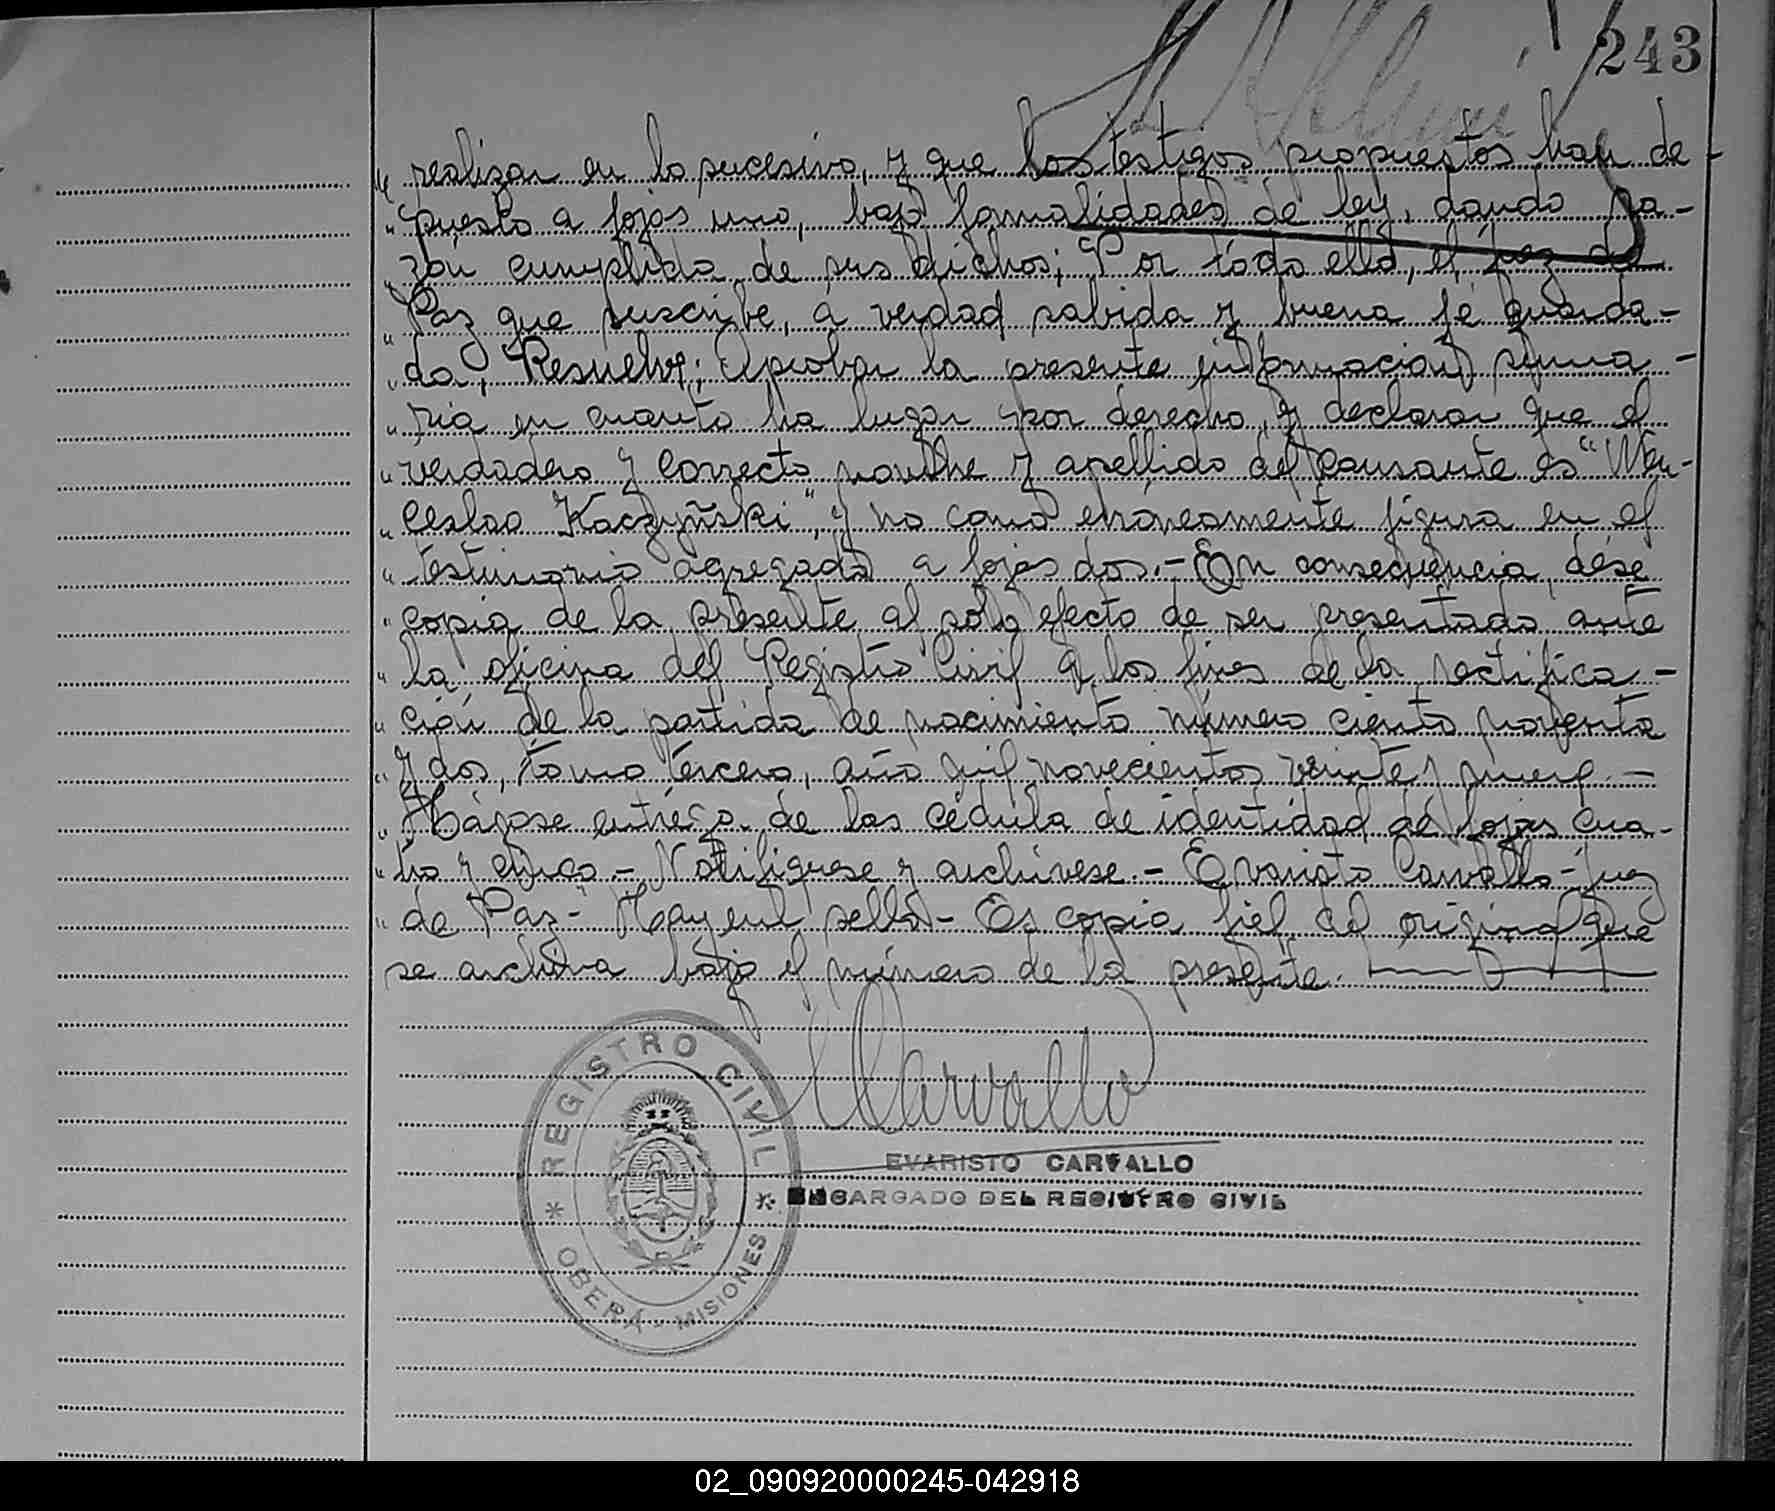 243
" realizar en lo sucesivo, y que los testigos propuestos han de-
" puesto a fojas uno, bajo formalidades de ley, dando ra-
" zón cumplida de sus dichos; Por todo ello, el juez de
" Paz que suscribe, a verdad sabida y buena fé guarda-
" da, Resuelve: Aprobar la presente información suma-
" ria en cuanto ha lugar por derecho, y declarar que el
" verdadero y correcto nombre y apellido del causante es "Wen-
" ceslao Kaczyñski", y no como erróneamente figura en el
" testimonio agregado a fojas dos.- En consecuencia, dése
" copia de la presente al sólo efecto de ser presentada ante
" la oficina del Registro Civil a los fines de la rectifica-
" ción de la partida de nacimiento número ciento noventa
" y dos, tomo tércero, año mil novecientos veinte y nueve.-
" Hágase entrega de las cédula de identidad de fojas cua-
" tro y cinco - Notifiquese y archívese.- Evaristo Carvallo - juez
" de Paz - Hay un sello - Es copia fiel del original que
se archiva bajo el número de la presente.
Carvallo
REGISTRO CIVIL
* OBERÁ - MISIONES *
EVARISTO CARVALLO
ENCARGADO DEL REGISTRO CIVIL
02_090920000245-042918